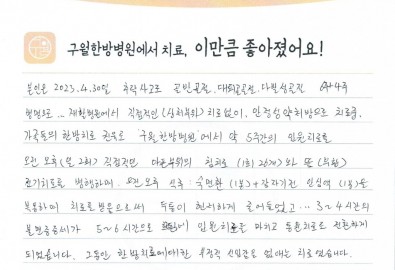 구월한방병원에서 치료, 이만큼 좋아졌어요!
본인은 2023.4.30일 추락사고로 골반골절, 대퇴골골절, 다발성골절 수4주
병원으로.. 재활병원에서 직접적인 (상처부위) 치료없이, 안정성 약처방으로 치료중,
가족들의 한방치료 권유로 "구월한방병원"에서 약 5주간의 입원치료로
오전 오후 (일 2회) 직접적인 아픈부위의 침치료 (1회 20개)와 뜸 (부황)
전기치료를 병행하며, 오전 오후 식후 : (1봉) + 감자기전 (1봉)을
복용하며 치료를 받음으로써 통증이 현저하게 줄어들었고... 3~4시간의
불면증증세가 5~6시간으로 입원치료를 마치고 통원치료로 전환하게
되었습니다. 그동안 한방치료에대한 부정적 선입견을 없애는 치료였습니다.